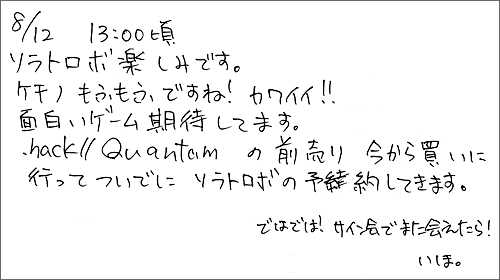 8/12 13:00頃
ソラトロボ楽しみです。
ケモノ もふもふですね! カワイイ!!
面白いゲーム期待してます。
.hack// Quantam の前売り 今から買いに
行ってついでに ソラトロボの予約してきます。
ではでは! サイン会でまた会えたら!
いほ。